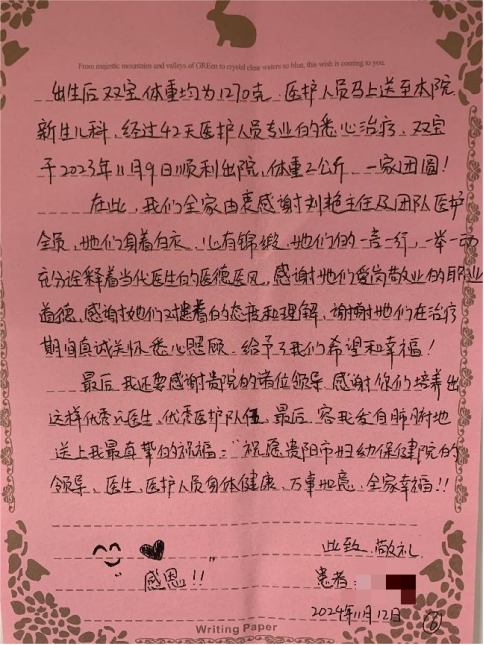 From majestic mountains and valleys of GREen to crystal clear waters so blue, this wish is coming to you.
出生后双宝体重均为1270克.医护人员马上送至本院
新生儿科,经过42天医护人员专业的悉心治疗,双宝
于2023年11月9日顺利出院,体重2公斤,一家团圆!
在此,我们全家由衷感谢刘艳主任及团队医护
全员,她们身着白衣、心有锦缎,她们的一言一行,一举一动
充分诠释着当代医生的医德医风,感谢她们爱岗敬业的职业
道德,感谢她们对患者的态度和理解,谢谢她们在治疗
期间真诚关怀悉心照顾、给予了我们希望和幸福!
最后,我还要感谢贵院的诸位领导,感谢你们培养出
这样优秀医生,优秀医护队伍,最后,容我发自肺腑地
送上我最真挚的祝福:"祝愿贵阳市妇幼保健院的
领导、医生、医护人员身体健康、万事如意、全家幸福!!
"
感恩!!
此致 敬礼
患者:
2024年11月12日
⑥
Writing Paper